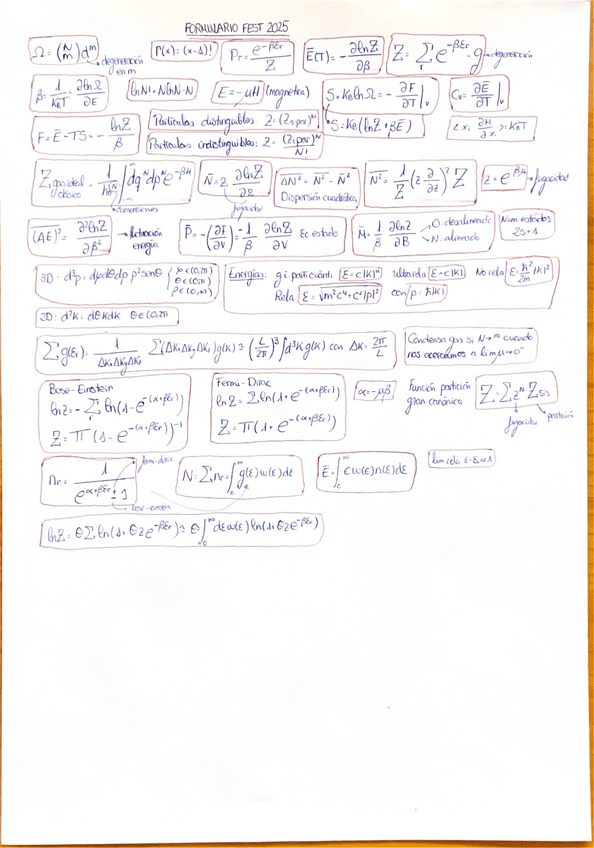 FORMULARIO FEST 2025
Ω = (N m) d^m → degeneración en m
Γ(x) = (x-1)!
Pr = e^{-βEr}/Z
Ē(T) = -∂lnZ/∂β
Z = Σ_r e^{-βEr} · g → degeneración
β = 1/(K_BT) = ∂lnΩ/∂E
lnN! = NlnN-N
E = -μH (magnetica)
S = K_B lnΩ = -∂F/∂T|_V
C_V = ∂Ē/∂T|_V
F = Ē - TS = -lnZ/β
Particulas distinguibles: Z = (Z1 par)^N
Particulas indistinguibles: Z = (Z1 par)^N/N!
S = K_B(lnZ + βE)
<x_i ∂H/∂x_i> = K_BT
Z gas ideal clásico = 1/h^{3N} ∫dq^N dp^N e^{-βH}
→ dimensiones
N̄ = z ∂lnZ/∂z
fugacidad
ΔN² = N² - N̄²
Dispersión cuadrática
N² = 1/Z (z ∂/∂z)² Z
z = e^{βμ} → fugacidad
(ΔE)² = ∂²lnZ/∂β² → fluctuación energía
P̄ = -(∂F/∂V) = 1/β ∂lnZ/∂V Ec estado
M̄ = 1/β ∂lnZ/∂B
→ 0: desalineado
→ N: alineado
Num estados 2S+1
3D: d³p = dφdθdp p²senθ { φ∈(0,2π) θ∈(0,π) p∈(0,∞)
Energías: g i. particuánti E = c|K|² ultrarela E = c|K| No rela E = ħ²/2m |K|²
Rela E = √(m²c⁴+c²|p|²) con p = ħ|K|
2D: d²K = dθKdK θ∈(0,2π)
Σ g(Er) = 1/(ΔKxΔKyΔKz) Σ(ΔKxΔKyΔKz)g(K) ≃ (L/2π)³ ∫d³K g(K) con ΔK = 2π/L
Condensa gas si N→∞ cuando
nos acercamos a lim μ→0⁻
Bose-Einstein
lnZ = -Σ_r ln(1-e^{-(α+βEr)})
Z = Π(1-e^{-(α+βEr)})^{-1}
Fermi-Dirac
lnZ = Σ ln(1+e^{-(α+βEr)})
Z = Π(1+e^{-(α+βEr)})
α = -μβ
Función partición gran canónica
Z = Σ z^N Z
fugacidad
partición
n_r = 1/(e^{α+βEr} ± 1)
fermi-dirac
bose-einstein
N = Σ n_r = ∫_0^∞ g(ε)w(ε)dε
Ē = ∫_0^∞ εw(ε)n(ε)dε
lnZ = θΣ ln(1+θze^{-βEr}) ≃ θ∫_0^∞ dεw(ε)ln(1+θze^{-βEr})